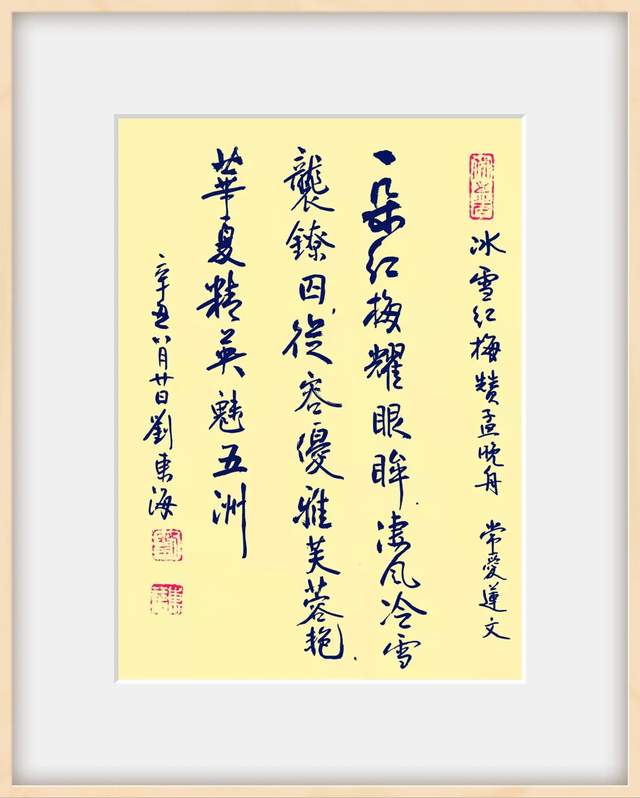 冰雪红梅赞孟晚舟 常愛蓮文
一朵红梅耀眼眸.凄风冷雪
襲鐐囚,從容優雅芙蓉艳.
華夏精英魅五洲
辛丑八月廿日劉東海